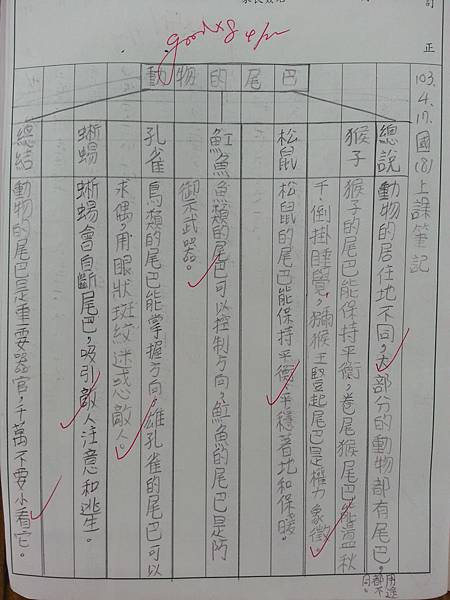 訂正
103.4.17.國(8)上課筆記
動物的尾巴
總說 動物的居住地不同,大部分的動物都有尾巴,用途都不同。
猴子 猴子的尾巴能保持平衡,卷尾猴尾巴能盪秋
千,倒掛睡覺,獼猴王豎起尾巴是權力象徵。
松鼠 松鼠的尾巴能保持平衡,平穩著地和保暖。
魟魚 魚類的尾巴可以控制方向,魟魚的尾巴是防
禦武器。
孔雀 鳥類的尾巴能掌握方向,雄孔雀的尾巴可以
求偶,用眼狀斑紋迷惑敵人。
蜥蜴 蜥蜴會自斷尾巴,吸引敵人注意和逃生。
總結 動物的尾巴是重要器官,千萬不要小看它。
goodx8